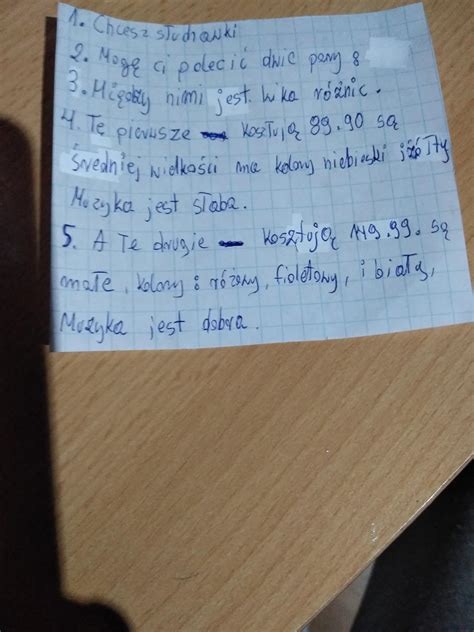 1. Chcesz słuchawki
2. Mogę ci polecić dwie pary :
3. Między nimi jest kilka różnic.
4. Te pierwsze kosztują 89.90 są
średniej wielkości ma kolory niebieski i żółty
Muzyka jest słaba.
5. A Te drugie kosztują 119.99. są
małe, kolory : różowy, fioletowy, i biały,
Muzyka jest dobra.